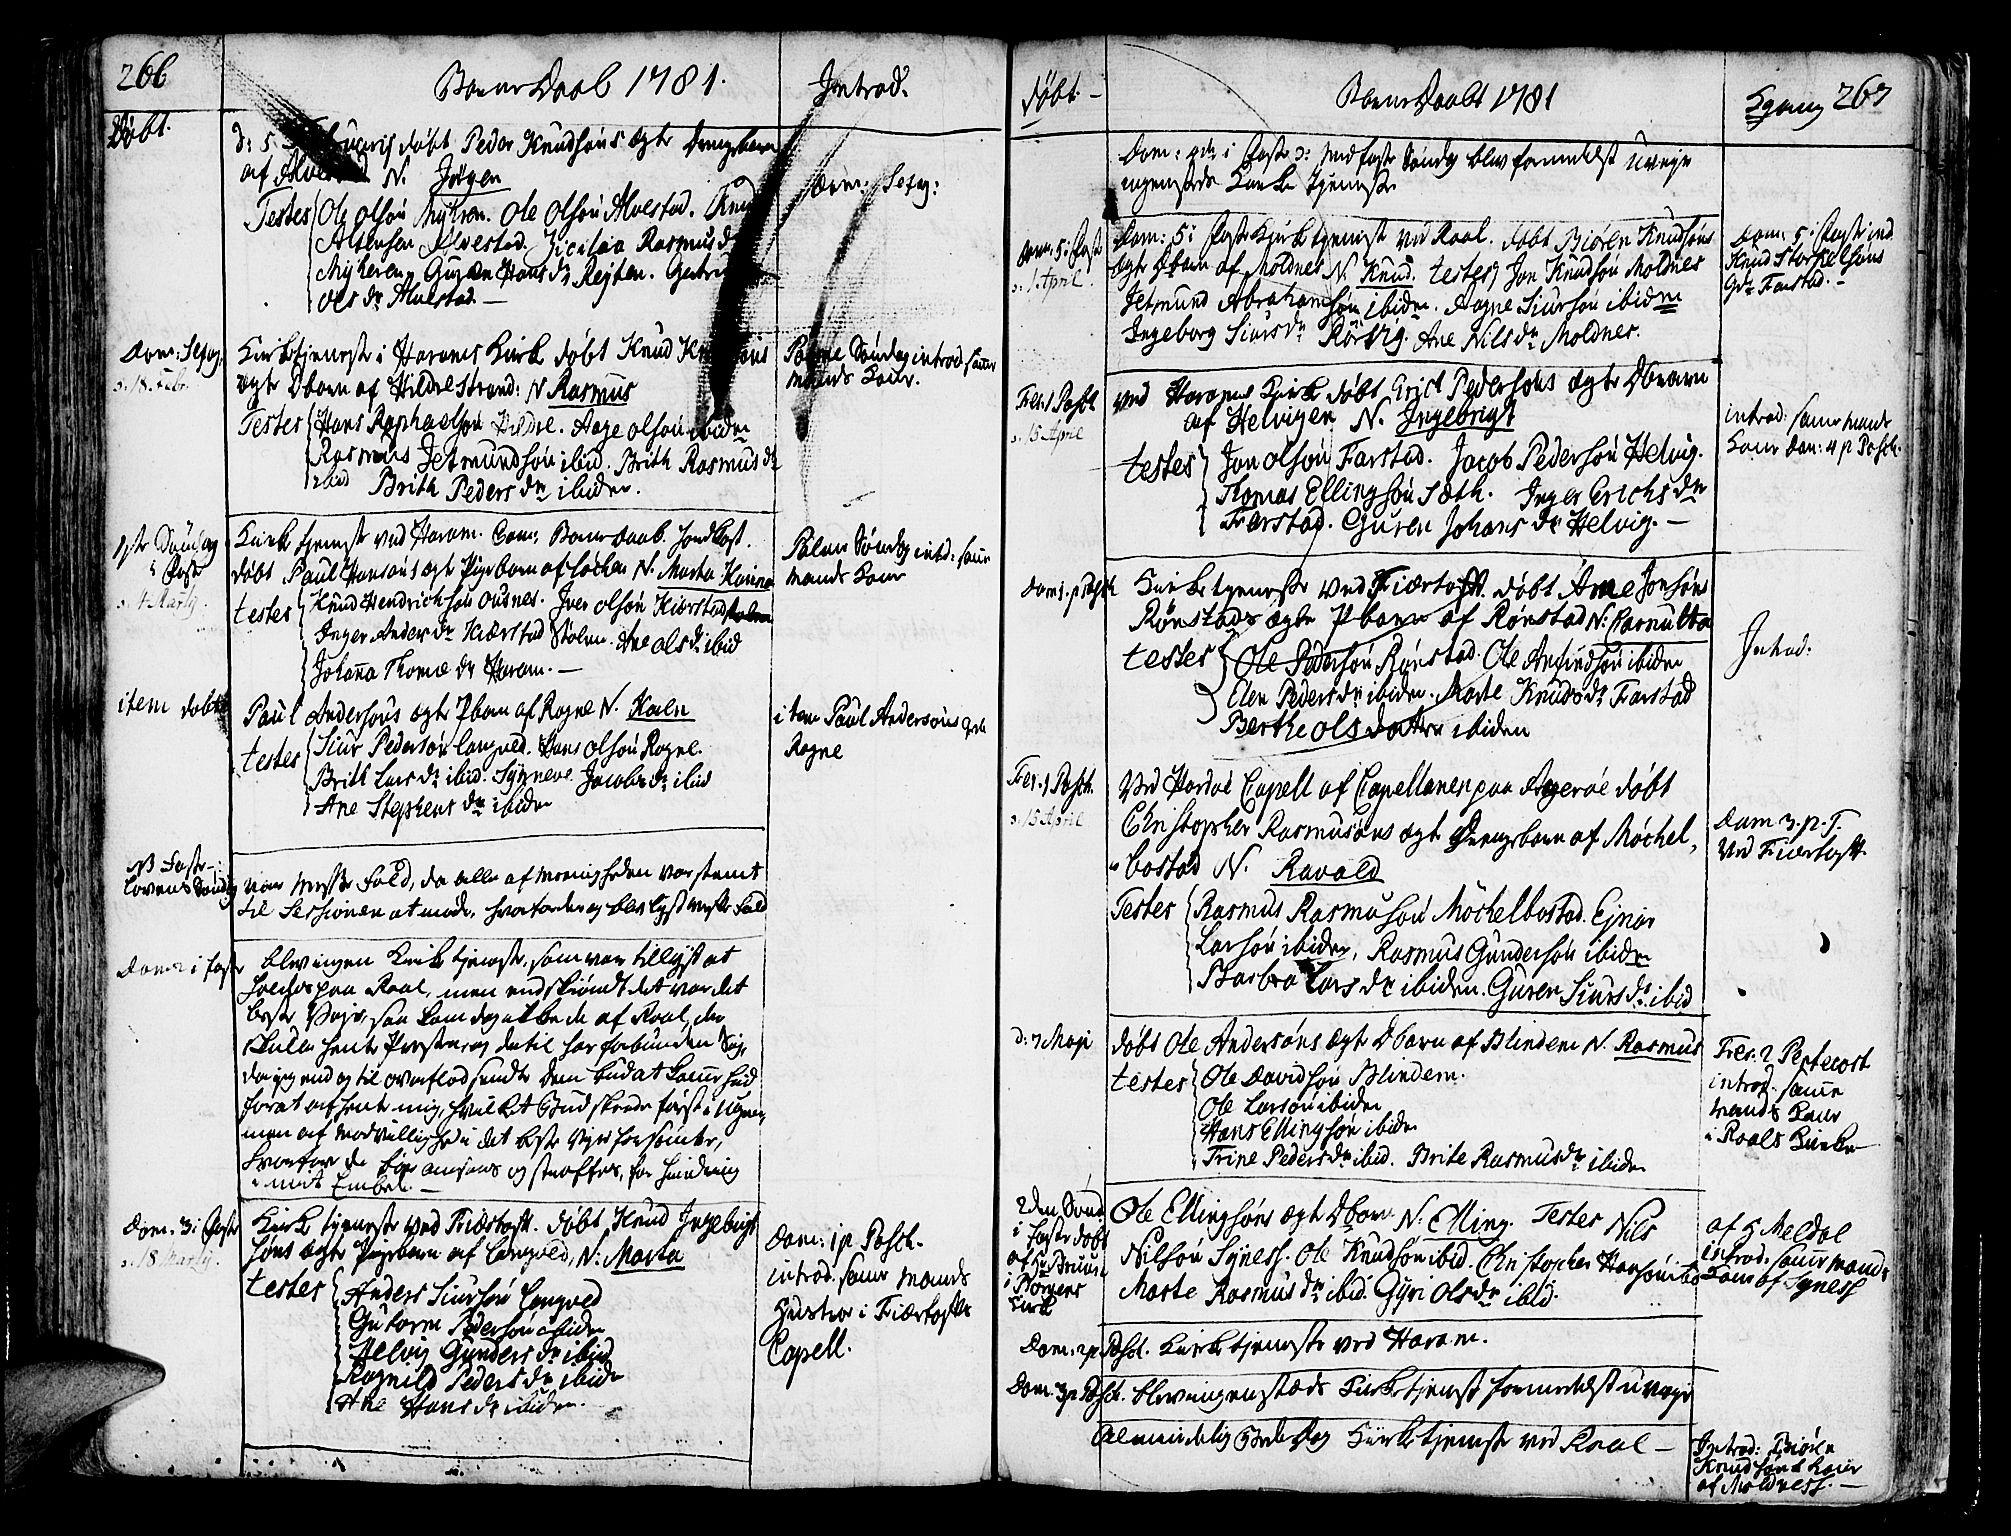 266
Barne Daab 1781.
Introd:
Døbt.
d: 5 Februarij døbt Peder Knudsøns ægte drengebarn
af Alvestad N. Jørgen
Testes Ole Olsøn Myhren. Ole Olsøn Alvestad. Knud
Alvestad. Rasmus dr
Myheren, Guren Hans dr Rejten.
Ols dr Alvestad.—
Dom: Septuag:
Dom: Septuag:
d. 18 Feb.
Kirketjeneste i Harams Kirke døbt Knud Knudsøns
ægte Dbarn af Hildrestrand: N Rasmus
Testes Hans Raphaelsøn Hildre. Aage olsøn ibiden
Rasmus Jetmundsøn ibid. Brith Rasmus dr
ibid Brith Peders dr ibiden.
Palme Søndag introd. samme
Mands Kone.
1ste Søndag
i Faste
d. 4 Martij.
Kirke tjeneste ved Haram. Barnedaab.
døbt Paul Hansøns ægte Pigebarn af Løchen N. Marta Karina
testes Knud Hendrichsøn Ousnes. Iver olsøn Kierstad
Inger Anders dr Kierstad Stølen. Ane ols dr ibid
Johanna Thomæ dr Haram.—
Palme Søndag introd: samme
Mands Kone
item døbt
Paul Andersøns ægte Pbarn af Rogne N. Karen
testes Siur Pedersøn Longved. Hans olsøn Rogne.
Brith Lars dr ibid. Synneve Jacobs dr ibid
Ane Stephens dr ibiden
item Paul Andersøns
Rogne
var Messe Fald, da alle af Menigheden var stemt
til Sessionen at møde, hvorfor der og blev lyst Messe Fald
Dom 2 i faste
blev ingen Kirke tjeneste, som var tillyst at
holdes paa Roal, men endskiøndt det var det
beste Vejr, saa kom dog ikke de af Roal, der
skulle hente Presten, og dertil har forbunden Sig,
da jeg end og til overflod sendte dem bud at komme hid
for at afhente mig, hvilket Bud skeede først i Ugen,
men af Modvillighed i det beste Vejr forsømte,
hvorfor de bør ansees og straffes, for hindring
i mit Embed.—
Dom. 3 i Faste
d. 18 Martij.
Kirke tjeneste ved Fiørtoft. døbt Knud Ingebrigt
søns ægte Pigebarn af Longved, N: Marta
testes Anders Siursøn Longved
Gutorm Pedersøn ibiden
Helvig Gunders dr ibid
Ragnild Peders dr ibiden
Ane Hans dr ibiden.
Dom: 1 p Pasch.
introd. samme Mands
Hustroe i Fiørtofts
Capell.
Døbt.—
Barne Daabt 1781
Kgang 267
Dom: 4de i Faste d: Midfaste Søndag blev formedelst Uvejr
ingensteds Kirke tjeneste
Dom: 5 i Faste
d. 1 April.
Dom: 5 i Faste Kirketjeneste ved Roal. døbt Biøren Knudsøns
ægte Dbarn af Moldnes N. Knud. testes Jon Knudsøn Moldnes
Jetmund Abrahamsøn ibiden. Aagne Siursøn ibidem
Ingeborg Siurs dr Rørvig. Ane Nils dr Moldnes.
Dom: 5 i Faste ind
Knud Storkelsøns
Farstad.—
Fer: 1 Pasch
d. 15 April
ved Harams Kirke døbt Erich Pedersøns ægte Dbarn
af Helvigen N. Ingebrigt
testes Jon olsøn Farstad. Jacob Pedersøn Helvig.
Thomas Ellingsøn Sæth. Inger Erichs dr
Farstad. Guren Johans dr Helvig.—
introd: samme Mands
Kone Dom: 4 p Pasch.
Dom 1. p Pasch
Kirke tjeneste ved Fiørtoft døbt Arne Jonsøns
Rønstads ægte Pbarn af Rønstad N: Pernulta
testes Ole Pedersøn Rønstad. Ole Amundsøn ibiden
Elen Peders dr ibiden. Marte Knuds dr Farstad
Berthe ols datter ibiden
Introd:
Fer. 1 Pasch.
d. 15 April
Ved Harøe Capell af Capellanen paa Aggerøe døbt
Christopher Rasmusøns ægte Drengebarn af Møchel,
bostad N. Ravald
Testes Rasmus Rasmusøn Møchelbostad. Ejnar
Larsøn ibiden, Rasmus Gundersøn ibiden
Barbra Lars dr ibiden. Guren Siurs dr ibid
Dom 3. p. T.
Ved Fiørtoft.
d: 7 Maji
døbt Ole Andersøns ægte Dbarn af Blindem N. Rasmus
testes Ole Davidsøn Blindem.
Ole Larsøn ibiden
Hans Ellingsøn ibiden
Trine Peders dr ibid. Brite Rasmus dr ibiden
Fer: 2 Pentecost
introd. samme
Mands Kone
i Roals Kirke
2den Sønd
i Faste døbt
af Hr Bruun
i Borgens
Kirke
Ole Ellingsøns ægte Dbarn N. Elling. Testes Nils
Nilsøn Syness. Ole Knudsøn ibid. Christopher Hansøn ibid
Marte Rasmus dr ibid. Gyri Ols dr ibid.
af H Meldal
introd: samme Mands
Kone af Syness
Dom: 2 p Pasch. Kirke tjeneste ved Haram.
Dom. 3 p Pasch. blev ingenstæds Kirketjenest formedelst uvejr
Almindelig Bededag Kirketjeneste ved Roal—
Introd: Biøren
Knudsøns Kone
af Moldness.—